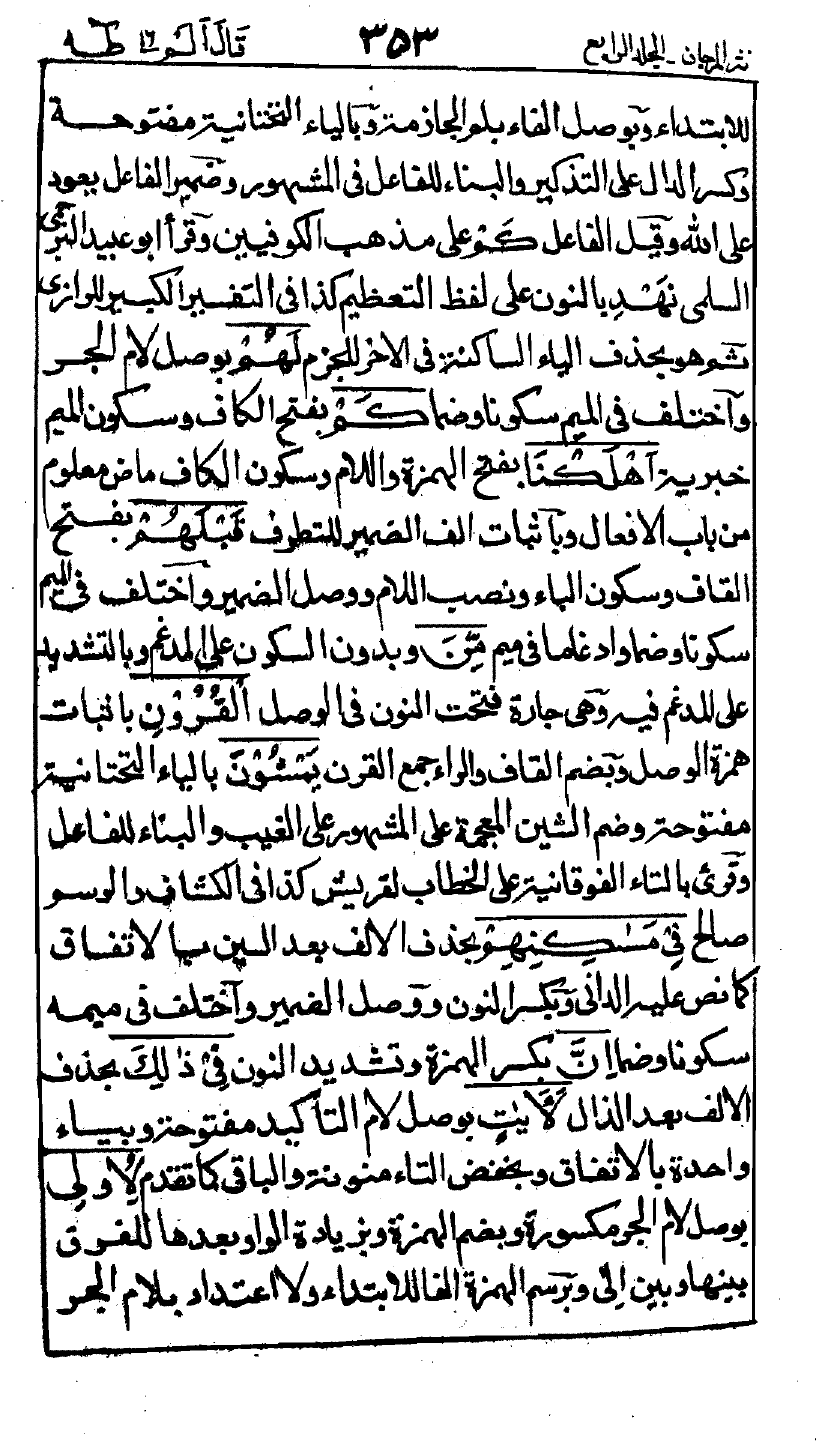 نثر المرجان - المجلد الرابع ٣٥٣ قال الم ١٦ طه
للابتداء وبوصل الفاء بلم الجازمة وبالياء التحتانية مفتوحة
وكسر الدال على التذكير والبناء للفاعل في المشهور وضمير الفاعل يعود
على الله وقيل الفاعل كم على مذهب الكوفيين وقرأ ابو عبيد الترمى
السلمى نَهْدِ بالنون على لفظ التعظيم كذا في التفسير الكبير للرازى
ثم هو بحذف الياء الساكنة في الاخر للجزم لَهُمْ بوصل لام الجر
واختلف في الميم سكونا وضما كَمْ بفتح الكاف وسكون الميم
خبرية اَهْلَكْنَا بفتح الهمزة واللام وسكون الكاف ماض معلوم
من باب الافعال وباثبات الف الضمير للتطرف قَبْلَهُمْ بفتح
القاف وسكون الباء ونصب اللام ووصل الضمير واختلف في الميم
سكونا وضما وادغاما في ميم مِّنَ وبدون السكون على المدغم وبالتشديد
على المدغم فيه وهى جارة فتحت النون في الوصل اَلْقُرُوْنِ باثبات
همزة الوصل وبضم القاف والراء جمع القرن يَمْشُوْنَ بالياء التحتانية
مفتوحة وضم الشين المعجمة على المشهور على الغيب والبناء للفاعل
وقرئ بالتاء الفوقانية على الخطاب لقريش كذا في الكشاف والوسو
صالح فِيْ مَسٰكِنِهِمْ بحذف الالف بعد السين بالاتفاق
كما نص عليه الدانى وبكسر النون ووصل الضمير واختلف في ميمه
سكونا وضما اِنَّ بكسر الهمزة وتشديد النون فِيْ ذٰلِكَ بحذف
الالف بعد الذال لَاٰيٰتٍ بوصل لام التأكيد مفتوحة وبياء
واحدة بالاتفاق وبخفض التاء منونة والباقي كما تقدم لِاُولِى
بوصل لام الجر مكسورة وبضم الهمزة وبزيادة الواو بعدها للفرق
بينها وبين اِلٰى وبرسم الهمزة الفا للابتداء ولا اعتداد بلام الجر